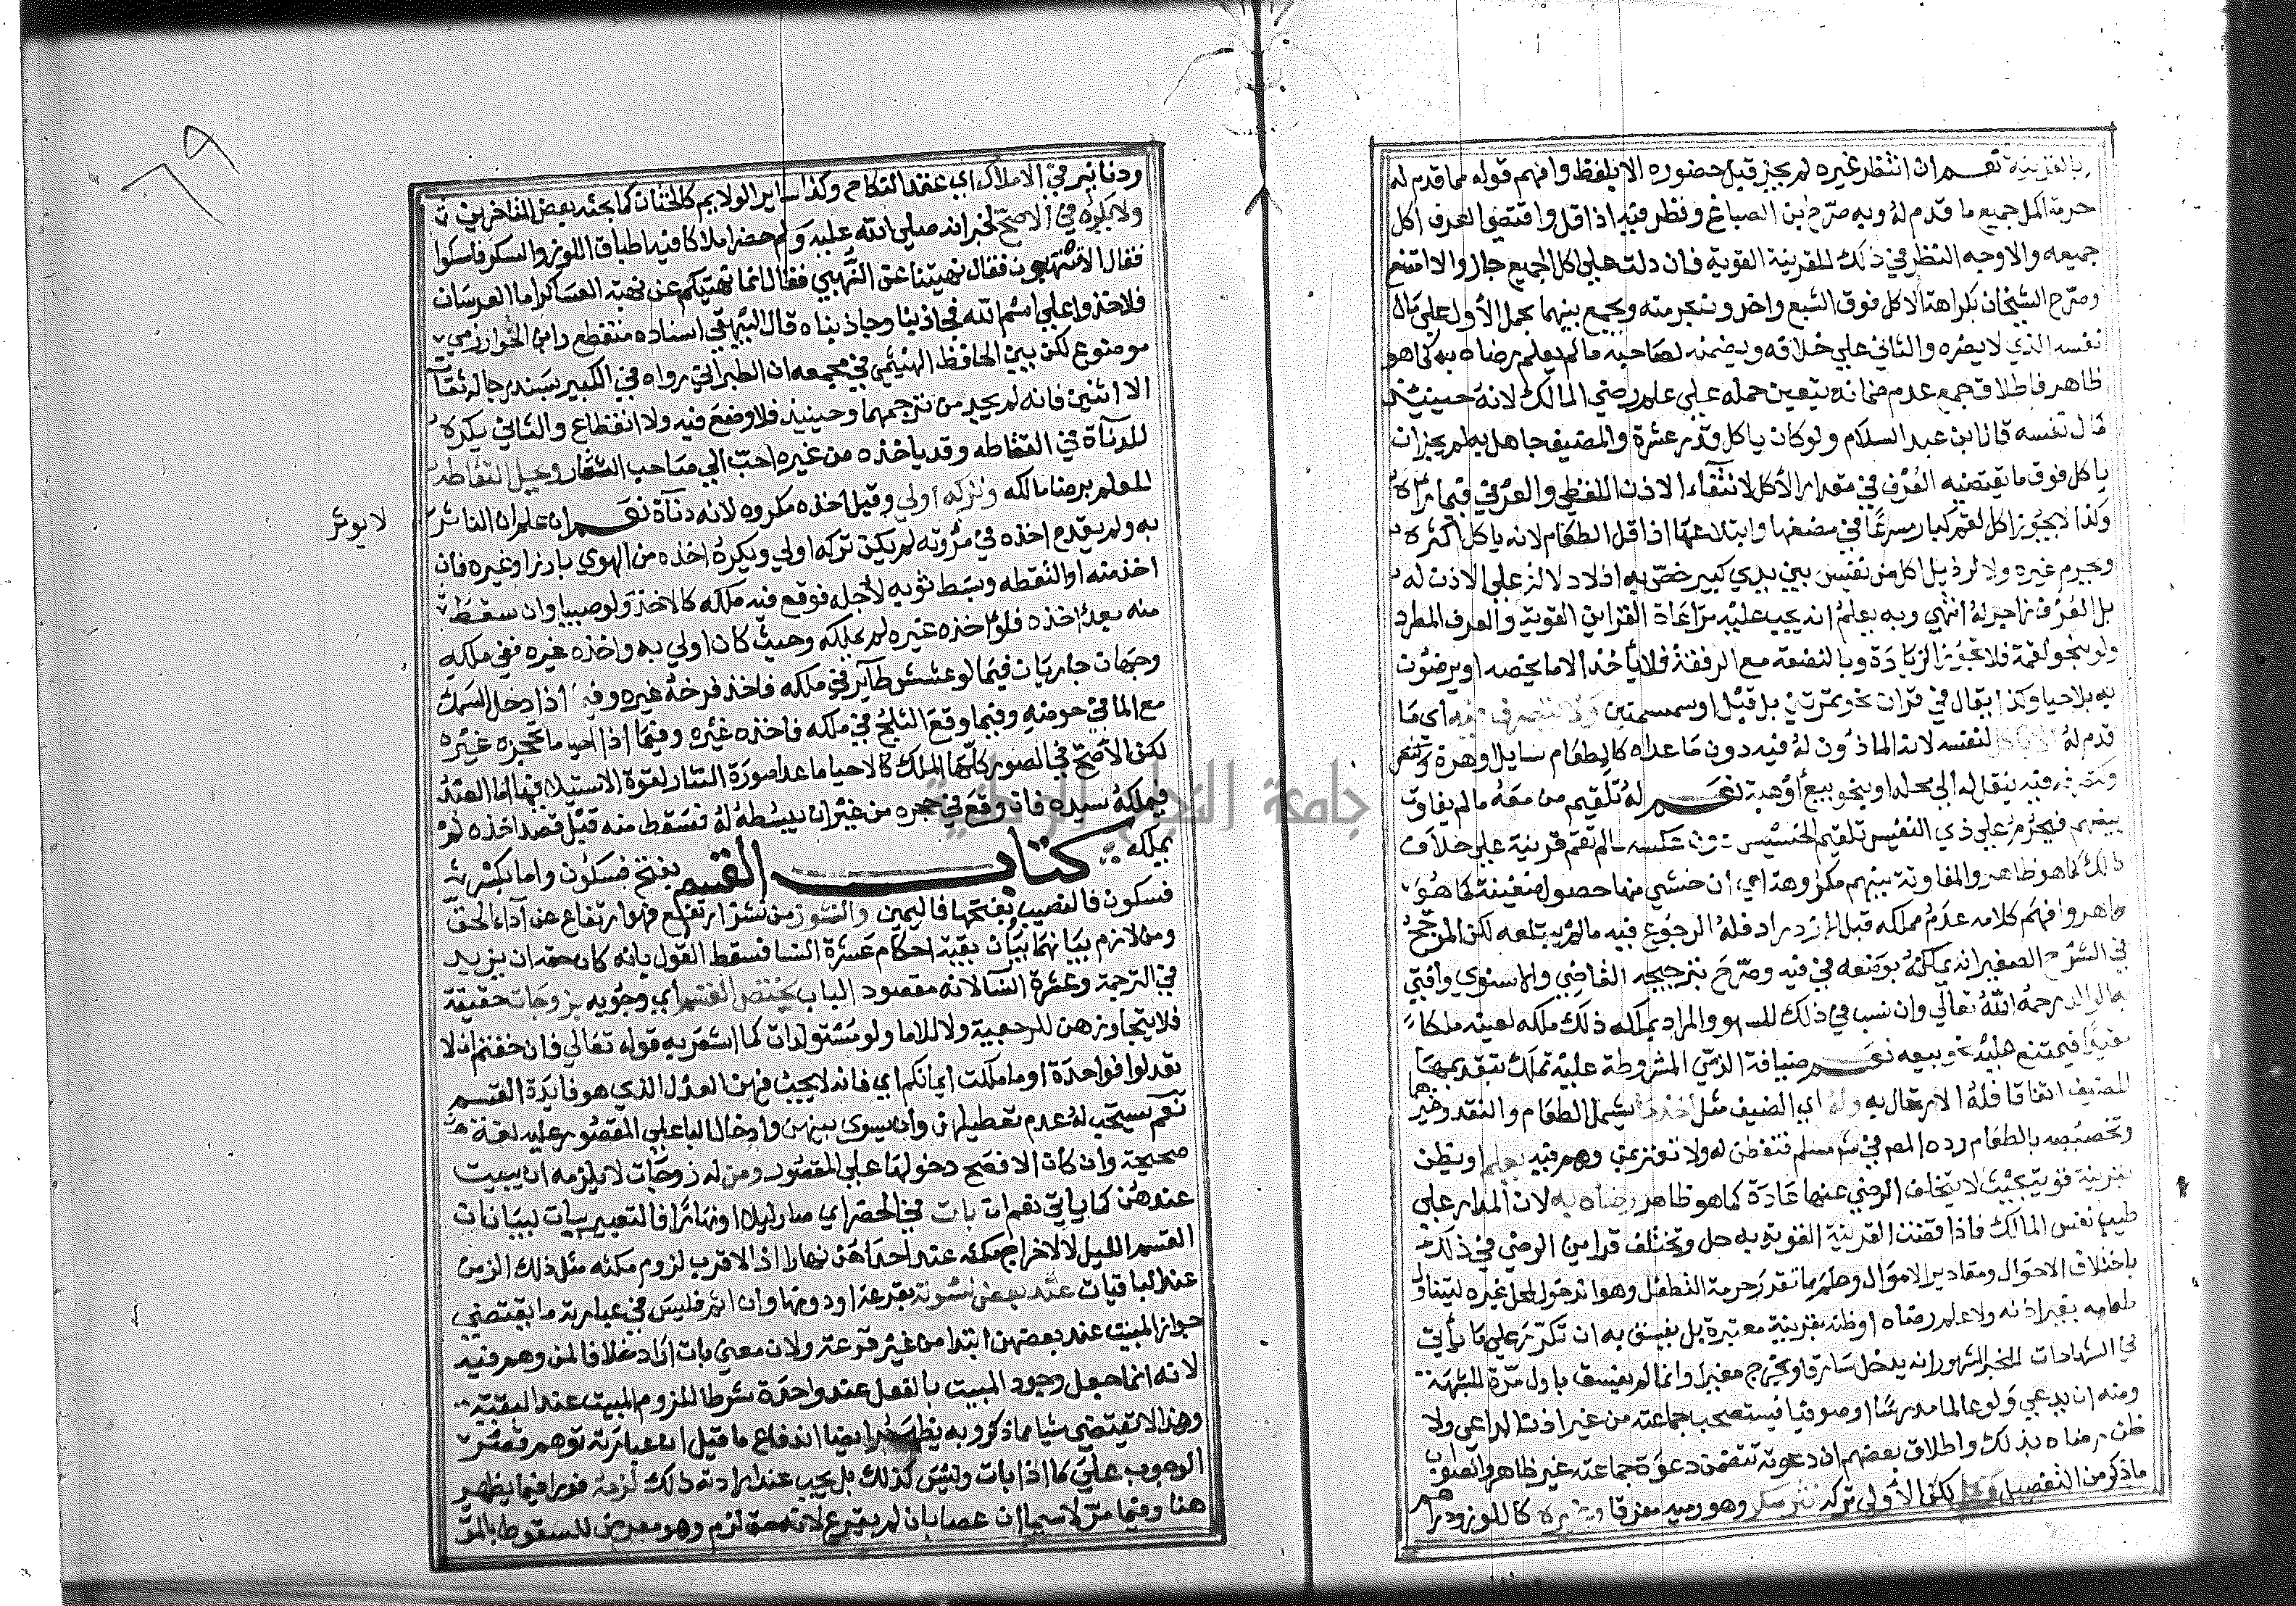 بالقرينة نعم ان انتظر غيره لم يجز قبل حضوره الا بلفظ وافهم قوله مما قدم له
حرمة اكل جميع ما قدم له وبه صرح ابن الصباغ ونظر فيه اذا قل واقتضى العرف اكل
جميعه والاوجه النظر في ذلك للقرينة القوية فان دلت على اكل الجميع جاز والا امتنع
وصرح الشيخان بكراهة الاكل فوق الشبع واخرون بحرمته ويجمع بينهما بحمل الأول على مال
نفسه الذي لا يضره والثاني على خلافه ويضمنه لصاحبه ما لم يعلم رضاه به كما هو
ظاهر فاطلاق جمع عدم ضمانه يتعين حمله على علم رضى المالك لانه حينئذ
قال نفسه قال ابن عبد السلام ولو كان ياكل قدر عشرة والمضيف جاهل به لم يجز ان
ياكل فوق ما يقتضيه العرف في مقدار الأكل لانتفاء الاذن اللفظي والعرفي فيما وراه
وكذا لا يجوز اكل لقم كبار مسرعا في مضغها وابتلاعها اذا قل الطعام لانه ياكل اكثره
ويحرم غيره ولا لرذيل اكل من نفيس بين يدي كبير خص به اذ لا دلالة على الاذن له
بل العرف زاجر له انتهى وبه يعلم انه يجب عليه مراعاة القراين القوية والعرف المطرد
ولو بنحو لقمة فلا تجوز الزيادة وبالنصفة مع الرفقة فلا يأخذ الا ما يخصه او يرضون
به بلا حيا وكذا يقال في قران نحو تمرتين بل قيل او سمسمتين ولا يتصرف فيه اي ما
قدم له الا بأكل لنفسه لانه الماذون له فيه دون ما عداه كاطعام سايل او هرة
وكتصرفه فيه بنقل له الى محله او بنحو بيع أو هبة نعم له تلقيم من معه ما لم يفاوت
بينهم فيحرم على ذي النفيس تلقيم الخسيس دون عكسه ما لم تقم قرينة على خلاف
ذلك كما هو ظاهر والمفاوتة بينهم مكروهة اي ان خشي منها حصول ضغينة كما هو
ظاهر وافهم كلامه عدم ملكه قبل الازدراد فله الرجوع فيه ما لم يبتلعه لكن المرجح
في الشرح الصغير انه يملكه بوضعه في فيه وصرح بترجيحه القاضي والاسنوي وافتى
به الوالد رحمه الله تعالى وان نسب في ذلك للسهو والمراد يملكه ذلك ملكه لعينه ملكا
مقيدا فيمتنع عليه نحو بيعه نعم ضيافة الذمي المشروطة عليه تملك بتقديمها
للمضيف اتفاقا فله الارتحال به وله اي الضيف مثلا اخذ ما يشمل الطعام والنقد وغيرهما
وتخصيصه بالطعام رده المص في شرح مسلم فتفطن له ولا تغتر بمن وهم فيه يعلم او يظن
بقرينة قوية بحيث لا يتخلف الرضى عنها عادة كما هو ظاهر رضاه به لان المدار على
طيب نفس المالك فاذا قضت القرينة القوية به حل وتختلف قراين الرضى في ذلك
باختلاف الاحوال ومقادير الاموال وعلم مما تقرر حرمة التطفل وهو الدخول لمحل غيره لتناول
طعامه بغير اذنه ولا علم رضاه او ظنه بقرينة معتبرة بل يفسق به ان تكرر على ما يأتي
في الشهادات للخبر المشهور انه يدخل سارقا ويخرج مغيرا وانما لم يفسق باول مرة للشبهة
ومنه ان يدعى ولو عالما مدرسا او صوفيا فيستصحب جماعته من غير اذن الداعي ولا
ظن رضاه بذلك واطلاق بعضهم ان دعوته تتضمن دعوة جماعته غير ظاهر والصواب
ما ذكر من التفصيل ويحل لكن الأولى تركه نثر سكر وهو رميه مفرقا وغيره كاللوز ودراهم
ودنانير في الاملاك اي عقد النكاح وكذا ساير الولايم كالختان كما بحثه بعض المتاخرين
ولا يكره في الاصح لخبر انه صلى الله عليه وسلم حضر املاكا فيه اطباق اللوز والسكر فامسكوا
فقال الا تنتهبون فقال نهيتنا عن النهبى فقال انما نهيتكم عن نهبة العساكر اما العرسان
فلا خذوا على اسم الله فجاذبنا وجاذبناه قال البيهقي اسناده منقطع وابن الجوزي
موضوع لكن بين الحافظ الهيثمي في مجمعه ان الطبراني رواه في الكبير بسند رجاله ثقات
الا اثنين فانه لم يجد من ترجمهما وحينئذ فلا وضع فيه ولا انقطاع والثاني يكره
للدنآة في التقاطه وقد ياخذه من غيره احب الى صاحب النثار ويحل التقاطه
للعلم برضا مالكه وتركه أولى وقيل اخذه مكروه لانه دنآة نعم ان علم ان الناثر
لا يوثر
به ولم يقدح اخذه في مروته لم يكن تركه اولى ويكره اخذه من الهوى بازار او غيره فان
اخذ منه او التقطه وبسط ثوبه لأجله فوقع فيه ملكه كالاخذ ولو صبيا وان سقط
منه بعد اخذه فلو اخذه غيره لم يملكه وحيث كان اولى به واخذه غيره ففي ملكه
وجهان جاريان فيما لو عشش طاير في ملكه فاخذ فرخه غيره وفيما اذا دخل السمك
مع الما في حوضه وفيما وقع الثلج في ملكه فاخذه غيره وفيما اذا احيا ما تحجره غيره
لكن الأصح في الصور كلها الملك كالاحيا ما عدا صورة النثار لقوة الاستيلا فيها اما العبد
فيملكه سيده فان وقع في حجره من غير ان يبسطه له فسقط منه قبل قصد اخذه لم
يملكه كتاب القسم بفتح فسكون واما بكسر
فسكون فالنصيب وبفتحها فاليمين والنشوز من نشز ارتفع فهو ارتفاع عن آداء الحق
ومن لازم بيانهما بيان بقية احكام عشرة النسا فسقط القول بانه كان حقه ان يزيد
في الترجمة وعشرة النسآ لانه مقصود الباب يختص القسم اي وجوبه بزوجات حقيقة
فلا يتجاوزهن للرجعية ولا للاما ولو مستولدات كما اشعر به قوله تعالى فان خفتم ان لا
تعدلوا فواحدة او ما ملكت ايمانكم اي فانه لا يجب فيهن العدل الذي هو فايدة القسم
نعم يستحب له عدم تعطيلهن وان يسوى بينهن وادخال البا على المقصور عليه لغة
صحيحة وان كان الافصح دخولها على المقصور ومن له زوجات لا يلزمه ان يبيت
عندهن كما ياتي نعم ان بات في الحضر اي صار ليلا او نهارا فالتعبير ببات لبيان ان
القسم الليل لا لاخراج مكثه عند احداهن نهارا اذ الاقرب لزوم مكثه مثل ذلك الزمن
عند الباقيات عند بعض نسوته بقرعة او دونها وان اثم فليس في عبارته ما يقتضي
جواز المبيت عند بعضهن ابتدا من غير قرعة ولان معنى بات اراد خلافا لمن وهم فيه
لانه انما جعل وجود المبيت بالفعل عند واحدة شرطا للزوم المبيت عند البقية
وهذا لا يقتضي شيا مما ذكر وبه يظهر ايضا اندفاع ما قيل ان عبارته توهم قصر
الوجوب على ما اذا بات وليس كذلك بل يجب عند ارادته ذلك لزمه فورا فيما يظهر
هنا وفيما مر لا سيما ان عصا بان لم يقرع لانه حق لزم وهو معرض للسقوط بالموت